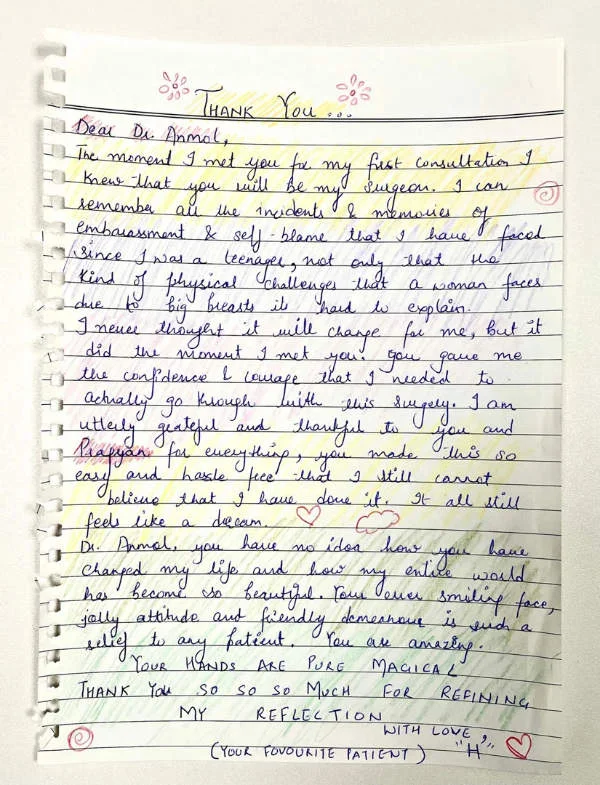 THANK YOU...
Dear Dr. Anmol,
The moment I met you for my first consultation I
knew that you will be my surgeon. I can
remember all the incidents & memories of
embarassment & self-blame that I have faced
since I was a teenager, not only that the
kind of physical challenges that a woman faces
due to big breasts its hard to explain.
I never thought it will change for me, but it
did the moment I met you. you gave me
the confidence & courage that I needed to
actually go through with this surgery. I am
utterly grateful and thankful to you and
Pragyan for everything, you made this so
easy and hassle free that I still cannot
believe that I have done it. It all still
feels like a dream.
Dr. Anmol, you have no idea how you have
changed my life and how my entire world
has become so beautiful. Your ever smiling face,
jolly attitude and friendly demeanour is such a
relief to any patient. You are amazing.
YOUR HANDS ARE PURE MAGICAL
THANK YOU SO SO SO MUCH FOR REFINING
MY REFLECTION
WITH LOVE,
(YOUR FOVOURITE PATIENT) "H"